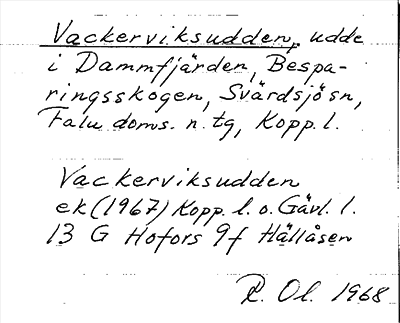 Vackerviksudden, udde
i Dammfjärden, Bespa-
ringsskogen, Svärdsjö sn,
Falu doms. n. tg, Kopp. l.
Vackerviksudden
ek (1967) Kopp. l. o. Gävl. l.
13 G Hofors 9f Hällåsen
R. Ol. 1968